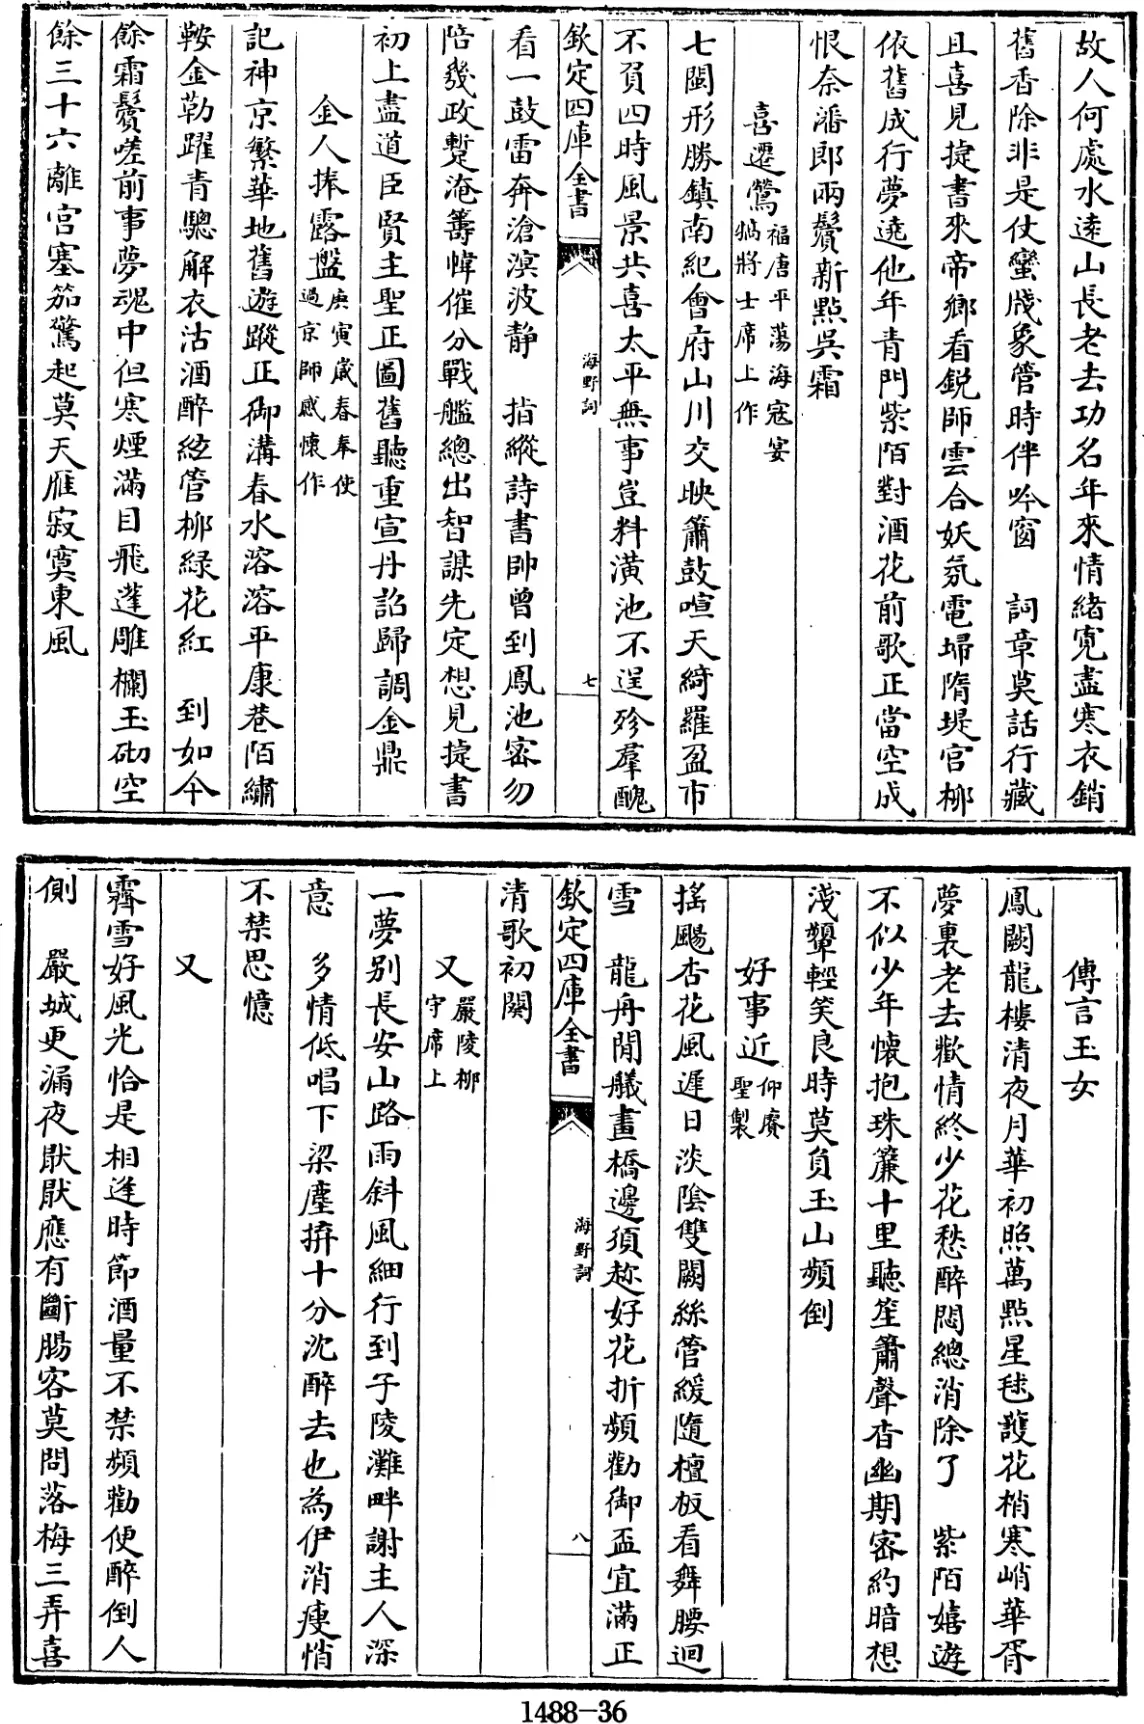 故人何處水遠山長老去功名年來情緒寬盡寒衣銷
舊香除非是仗蠻牋象管時伴吟窗　詞章莫話行藏
且喜見捷書來帝鄉看銳師雲合妖氛電埽隋堤官柳
依舊成行夢遶他年青門紫陌對酒花前歌正當空成
恨奈潘郎兩鬢新點吳霜
喜遷鶯福唐平蕩海寇宴
犒將士席上作
七閩形勝鎮南紀會府山川交映簫鼓喧天綺羅盈市
不負四時風景共喜太平無事豈料潢池不逞殄羣醜
欽定四庫全書
海野詞
七
看一鼓雷奔滄溟波靜　指縱詩書帥曾到鳳池密勿
陪幾政蹔淹籌幃催分戰艦總出智謀先定想見捷書
初上盡道臣賢主聖正圖舊聽重宣丹詔歸調金鼎
金人捧露盤庚寅歲春奉使
過京師感懷作
記神京繁華地舊遊蹤正御溝春水溶溶平康巷陌繡
鞍金勒躍青驄解衣沽酒醉絃管柳綠花紅　到如今
餘霜鬢嗟前事夢魂中但寒煙滿目飛蓬雕欄玉砌空
餘三十六離宮塞笳驚起莫天雁寂寞東風
傳言玉女
鳳闕龍樓清夜月華初照萬點星毬護花梢寒峭華胥
夢裏老去歡情終少花愁醉悶總消除了　紫陌嬉遊
不似少年懷抱珠簾十里聽笙簫聲杳幽期密約暗想
淺顰輕笑良時莫負玉山頻倒
好事近仰賡
聖製
搖颺杏花風遲日淡陰雙闕絲管緩隨檀板看舞腰迴
雪　龍舟閒艤畫橋邊須趂好花折頻勸御盃宜滿正
欽定四庫全書
海野詞
八
清歌初闋
又嚴陵柳
守席上
一夢别長安山路雨斜風細行到子陵灘畔謝主人深
意　多情低唱下梁塵拚十分沈醉去也為伊消瘦悄
不禁思憶
又
霽雪好風光恰是相逢時節酒量不禁頻勸便醉倒人
側　嚴城更漏夜厭厭應有斷腸客莫問落梅三弄喜
1488-36